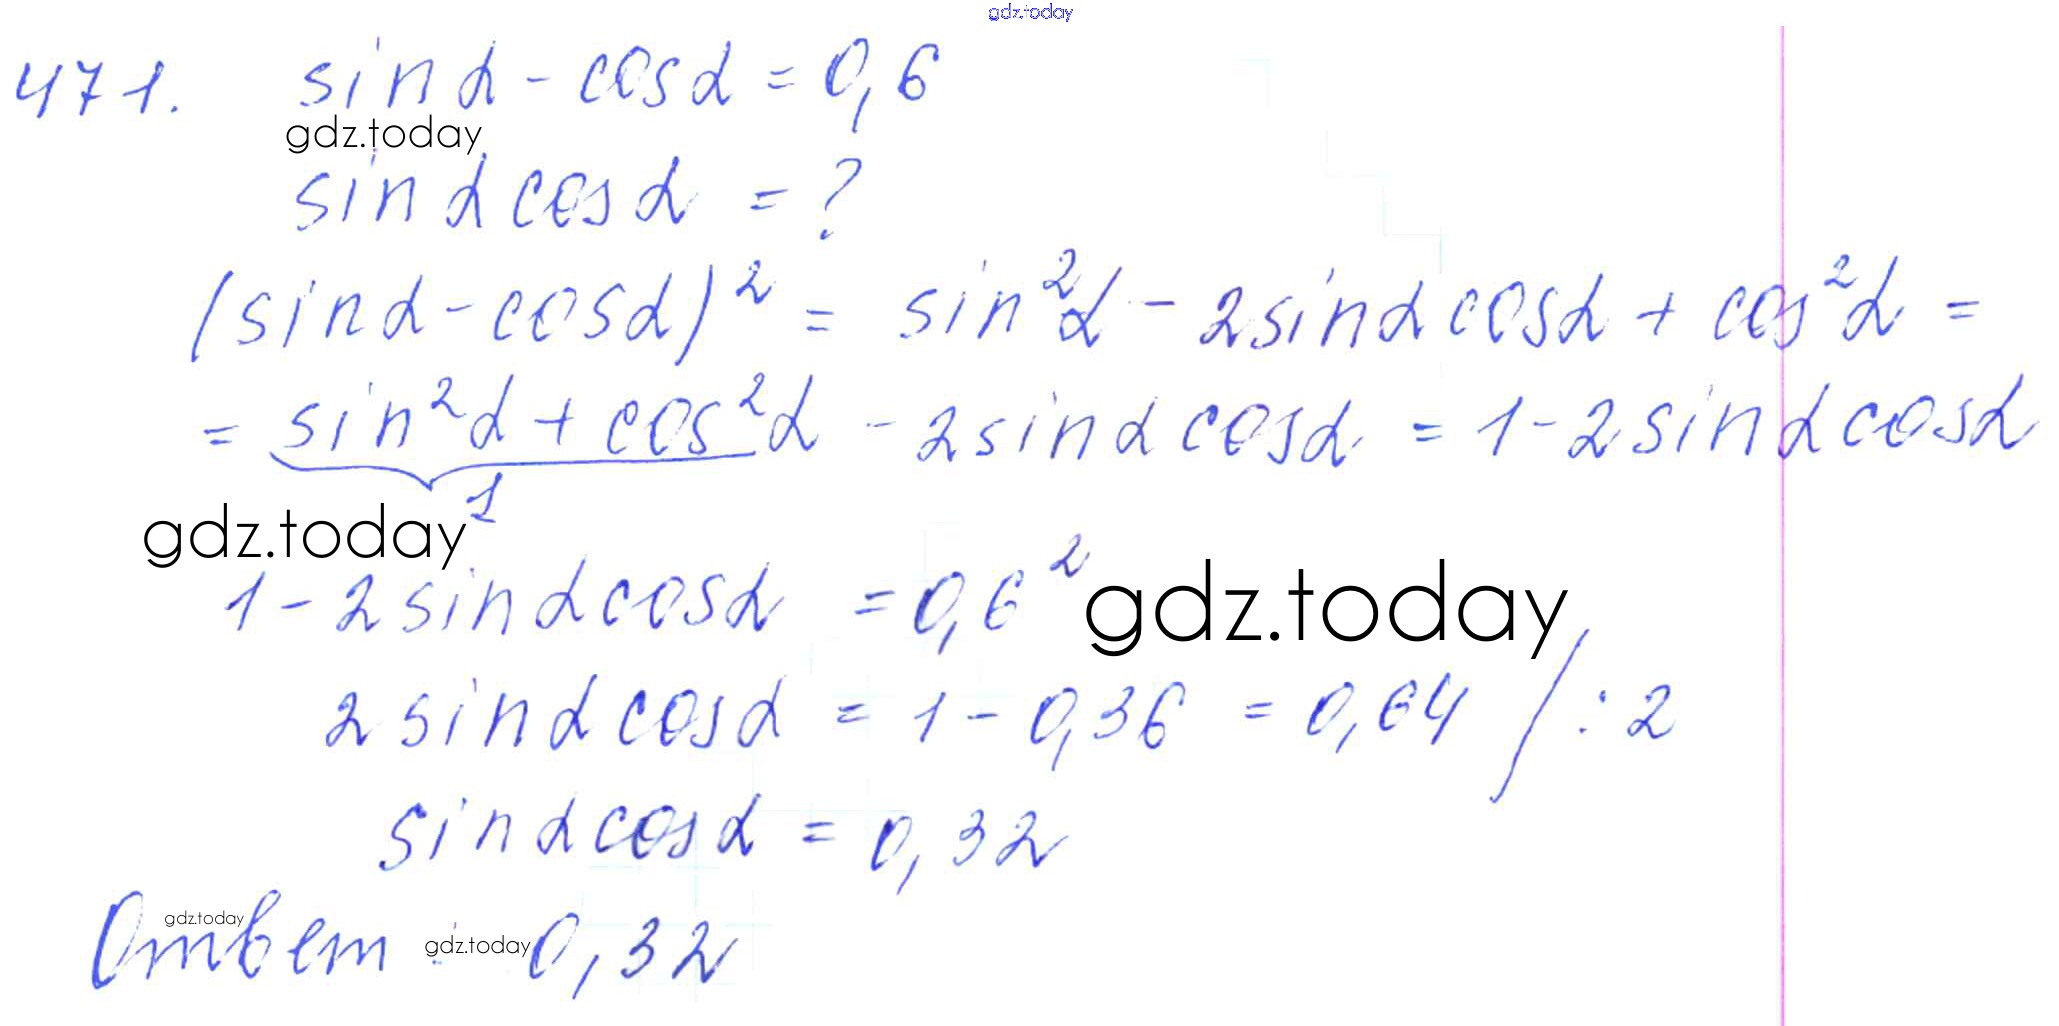 gdz.today
471. sinα - cosα = 0,6
gdz.today
sinα cosα = ?
(sinα - cosα)² = sin²α - 2sinα cosα + cos²α =
= sin²α + cos²α - 2sinα cosα = 1 - 2sinα cosα
1
gdz.today
1 - 2sinα cosα = 0,6²
gdz.today
2sinα cosα = 1 - 0,36 = 0,64 / : 2
sinα cosα = 0,32
gdz.today
Ответ: 0,32
gdz.today